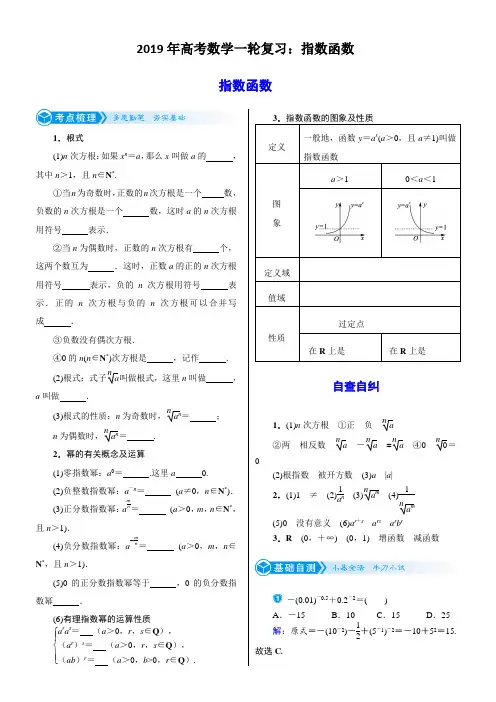 2019年高考数学一轮复习：指数函数
指数函数
考点梳理 多思勤笔 夯实基础
1．根式
(1)n次方根：如果xⁿ＝a，那么x叫做a的　　，
其中n＞1，且n∈N*.
①当n为奇数时，正数的n次方根是一个　　数，
负数的n次方根是一个　　数，这时a的n次方根
用符号　　表示．
②当n为偶数时，正数的n次方根有　　个，
这两个数互为　　．这时，正数a的正的n次方根
用符号　　表示，负的n次方根用符号　　表
示．正的n次方根与负的n次方根可以合并写
成　　．
③负数没有偶次方根．
④0的n(n∈N*)次方根是　　，记作　　．
(2)根式：式子ⁿ√a叫做根式，这里n叫做　　，
a叫做　　．
(3)根式的性质：n为奇数时，ⁿ√aⁿ＝　　；
n为偶数时，ⁿ√aⁿ＝　　．
2．幂的有关概念及运算
(1)零指数幂：a⁰＝　　.这里a　　0.
(2)负整数指数幂：a⁻ⁿ＝　　(a≠0，n∈N*)．
(3)正分数指数幂：a^(m/n)＝　　(a＞0，m，n∈N*，
且n＞1)．
(4)负分数指数幂：a^(－m/n)＝　　(a＞0，m，n∈
N*，且n＞1)．
(5)0的正分数指数幂等于　　，0的负分数指
数幂　　．
(6)有理指数幂的运算性质
aʳaˢ＝　　(a＞0，r，s∈Q)，
(aʳ)ˢ＝　　(a＞0，r，s∈Q)，
(ab)ʳ＝　　(a＞0，b>0，r∈Q)．
3．指数函数的图象及性质
定义
一般地，函数y＝aˣ(a＞0，且a≠1)叫做
指数函数
图
象
a＞1 0＜a＜1
y y=aˣ y=1 O x
y=aˣ y y=1 O x
定义域
值域
性质
过定点
在R上是 在R上是
自查自纠
1．(1)n次方根　①正　负　ⁿ√a
②两　相反数　ⁿ√a　－ⁿ√a　±ⁿ√a　④0　ⁿ√0＝
0
(2)根指数　被开方数　(3)a　|a|
2．(1)1　≠　(2)1/aⁿ　(3)ⁿ√aᵐ　(4)1/ⁿ√aᵐ
(5)0　没有意义　(6)aʳ⁺ˢ　aʳˢ　aʳbʳ
3．R　(0，＋∞)　(0，1)　增函数　减函数
基础自测 小易全活 牛刀小试
1 －(0.01)^(－0.5)＋0.2⁻²＝(　　)
A．－15 B．10 C．15 D．25
解：原式＝－(10⁻²)^(－1/2)＋(5⁻¹)⁻²＝－10＋5²＝15.
故选C.